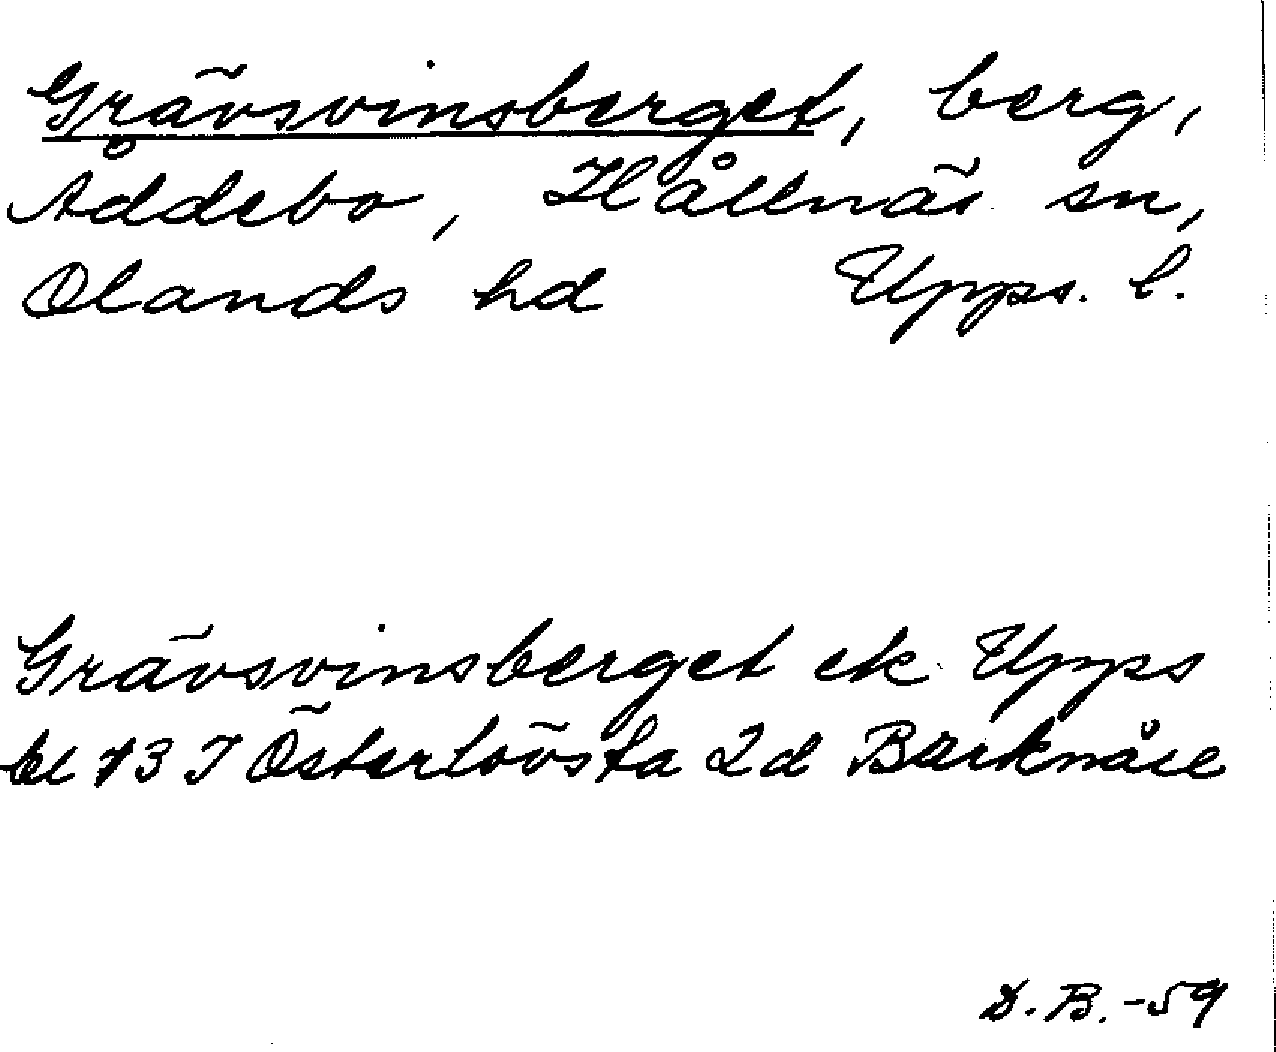 Grävsvinsberget, berg,
Åddebo, Hållnäs sn,
Olands hd Upps. l.
Grävsvinsberget ek Upps
bl 13 I Österlövsta 2d Barknåre
D.B.-59